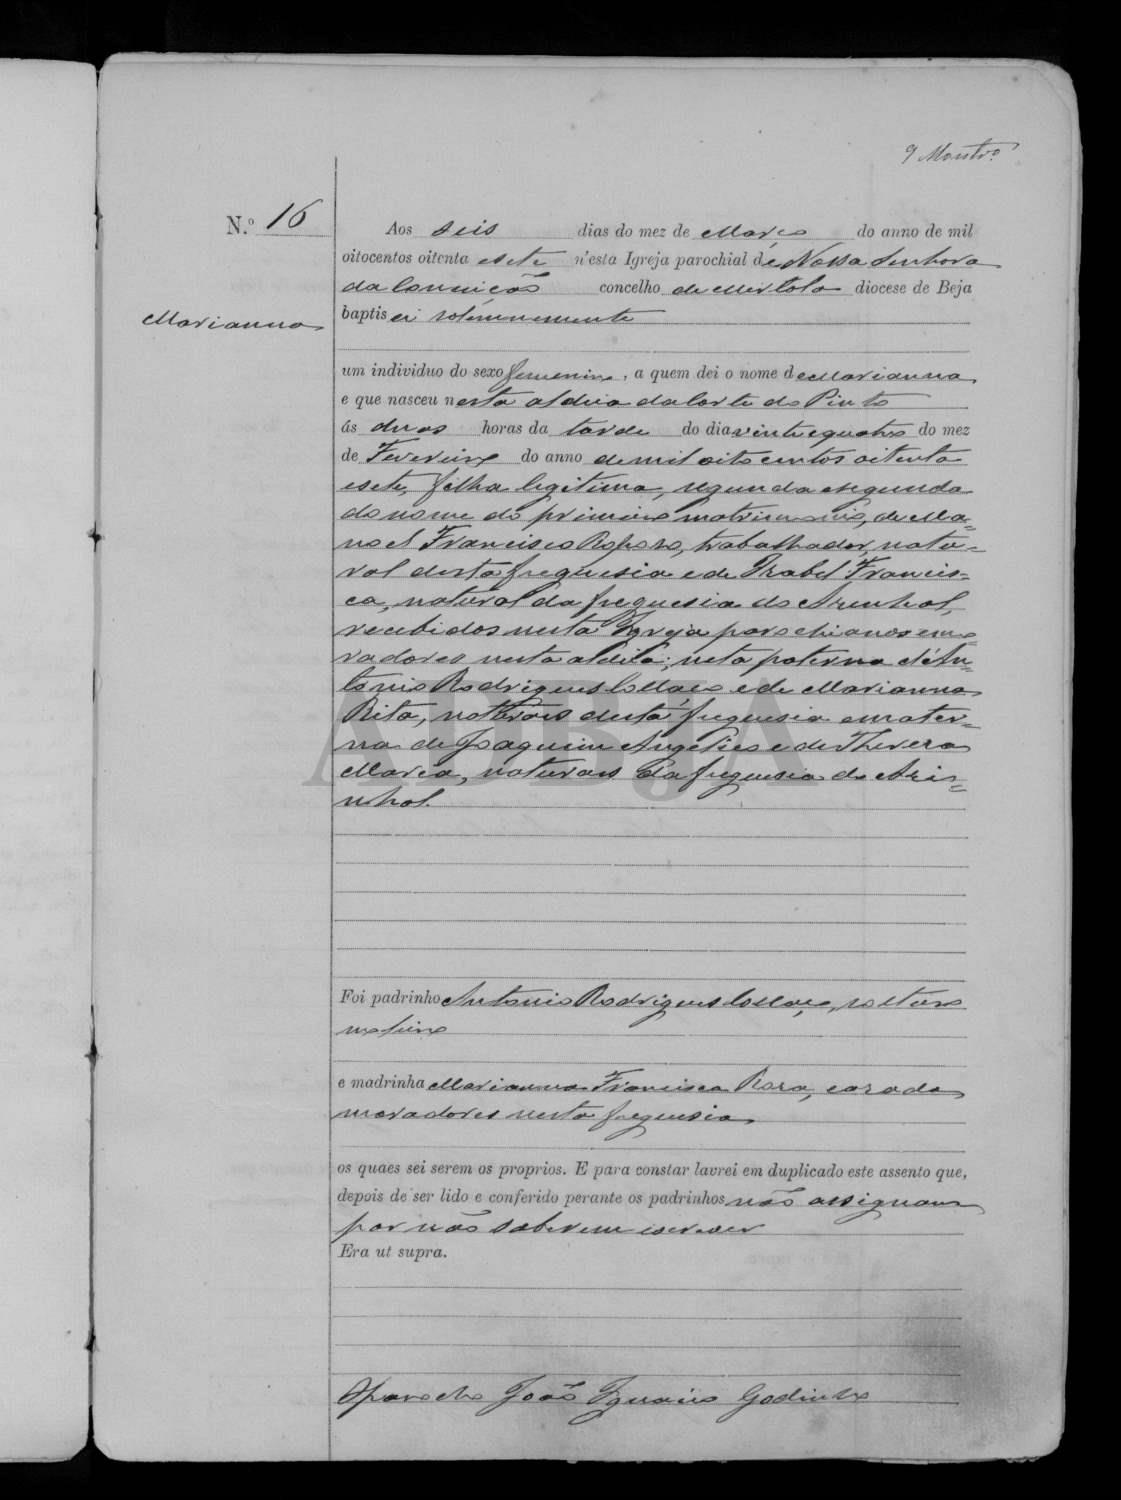 9 Montrº
N.º 16
Aos seis dias do mez de Março do anno de mil
oitocentos oitenta e sete n'esta Igreja parochial de Nossa Senhora
da Conceição concelho de Mertola diocese de Beja
Marianna
baptisei solemnemente
um individuo do sexo femenino, a quem dei o nome de Marianna
e que nasceu nesta aldeia da Corte do Pinto
ás duas horas da tarde do dia vinte e quatro do mez
de Fevereiro do anno de mil oito centos oitenta
e sete, filha legitima, segunda e segunda
do nome do primeiro matrimonio, de Ma=
noel Francisco Raposo, trabalhador, natu=
ral desta freguesia e de Izabel Francis=
ca, natural da freguesia do Azinhal,
recebidos nesta Igreja parochianos e mo=
radores nesta aldeia; neta paterna d'An=
tonio Rodrigues Collaço e de Marianna
Rita, naturais desta freguesia e mater=
na de Joaquim Angelico e de Thereza
Maria, naturais da freguesia do Azi=
nhal.
ADBJA
Foi padrinho Antonio Rodrigues Collaço, solteiro
e madrinha Marianna Francisca Roza, cazada
moradores nesta freguesia
os quaes sei serem os proprios. E para constar lavrei em duplicado este assento que,
depois de ser lido e conferido perante os padrinhos não assignam
por não saberem escrever
Era ut supra.
O parocho João Ignacio Godinho